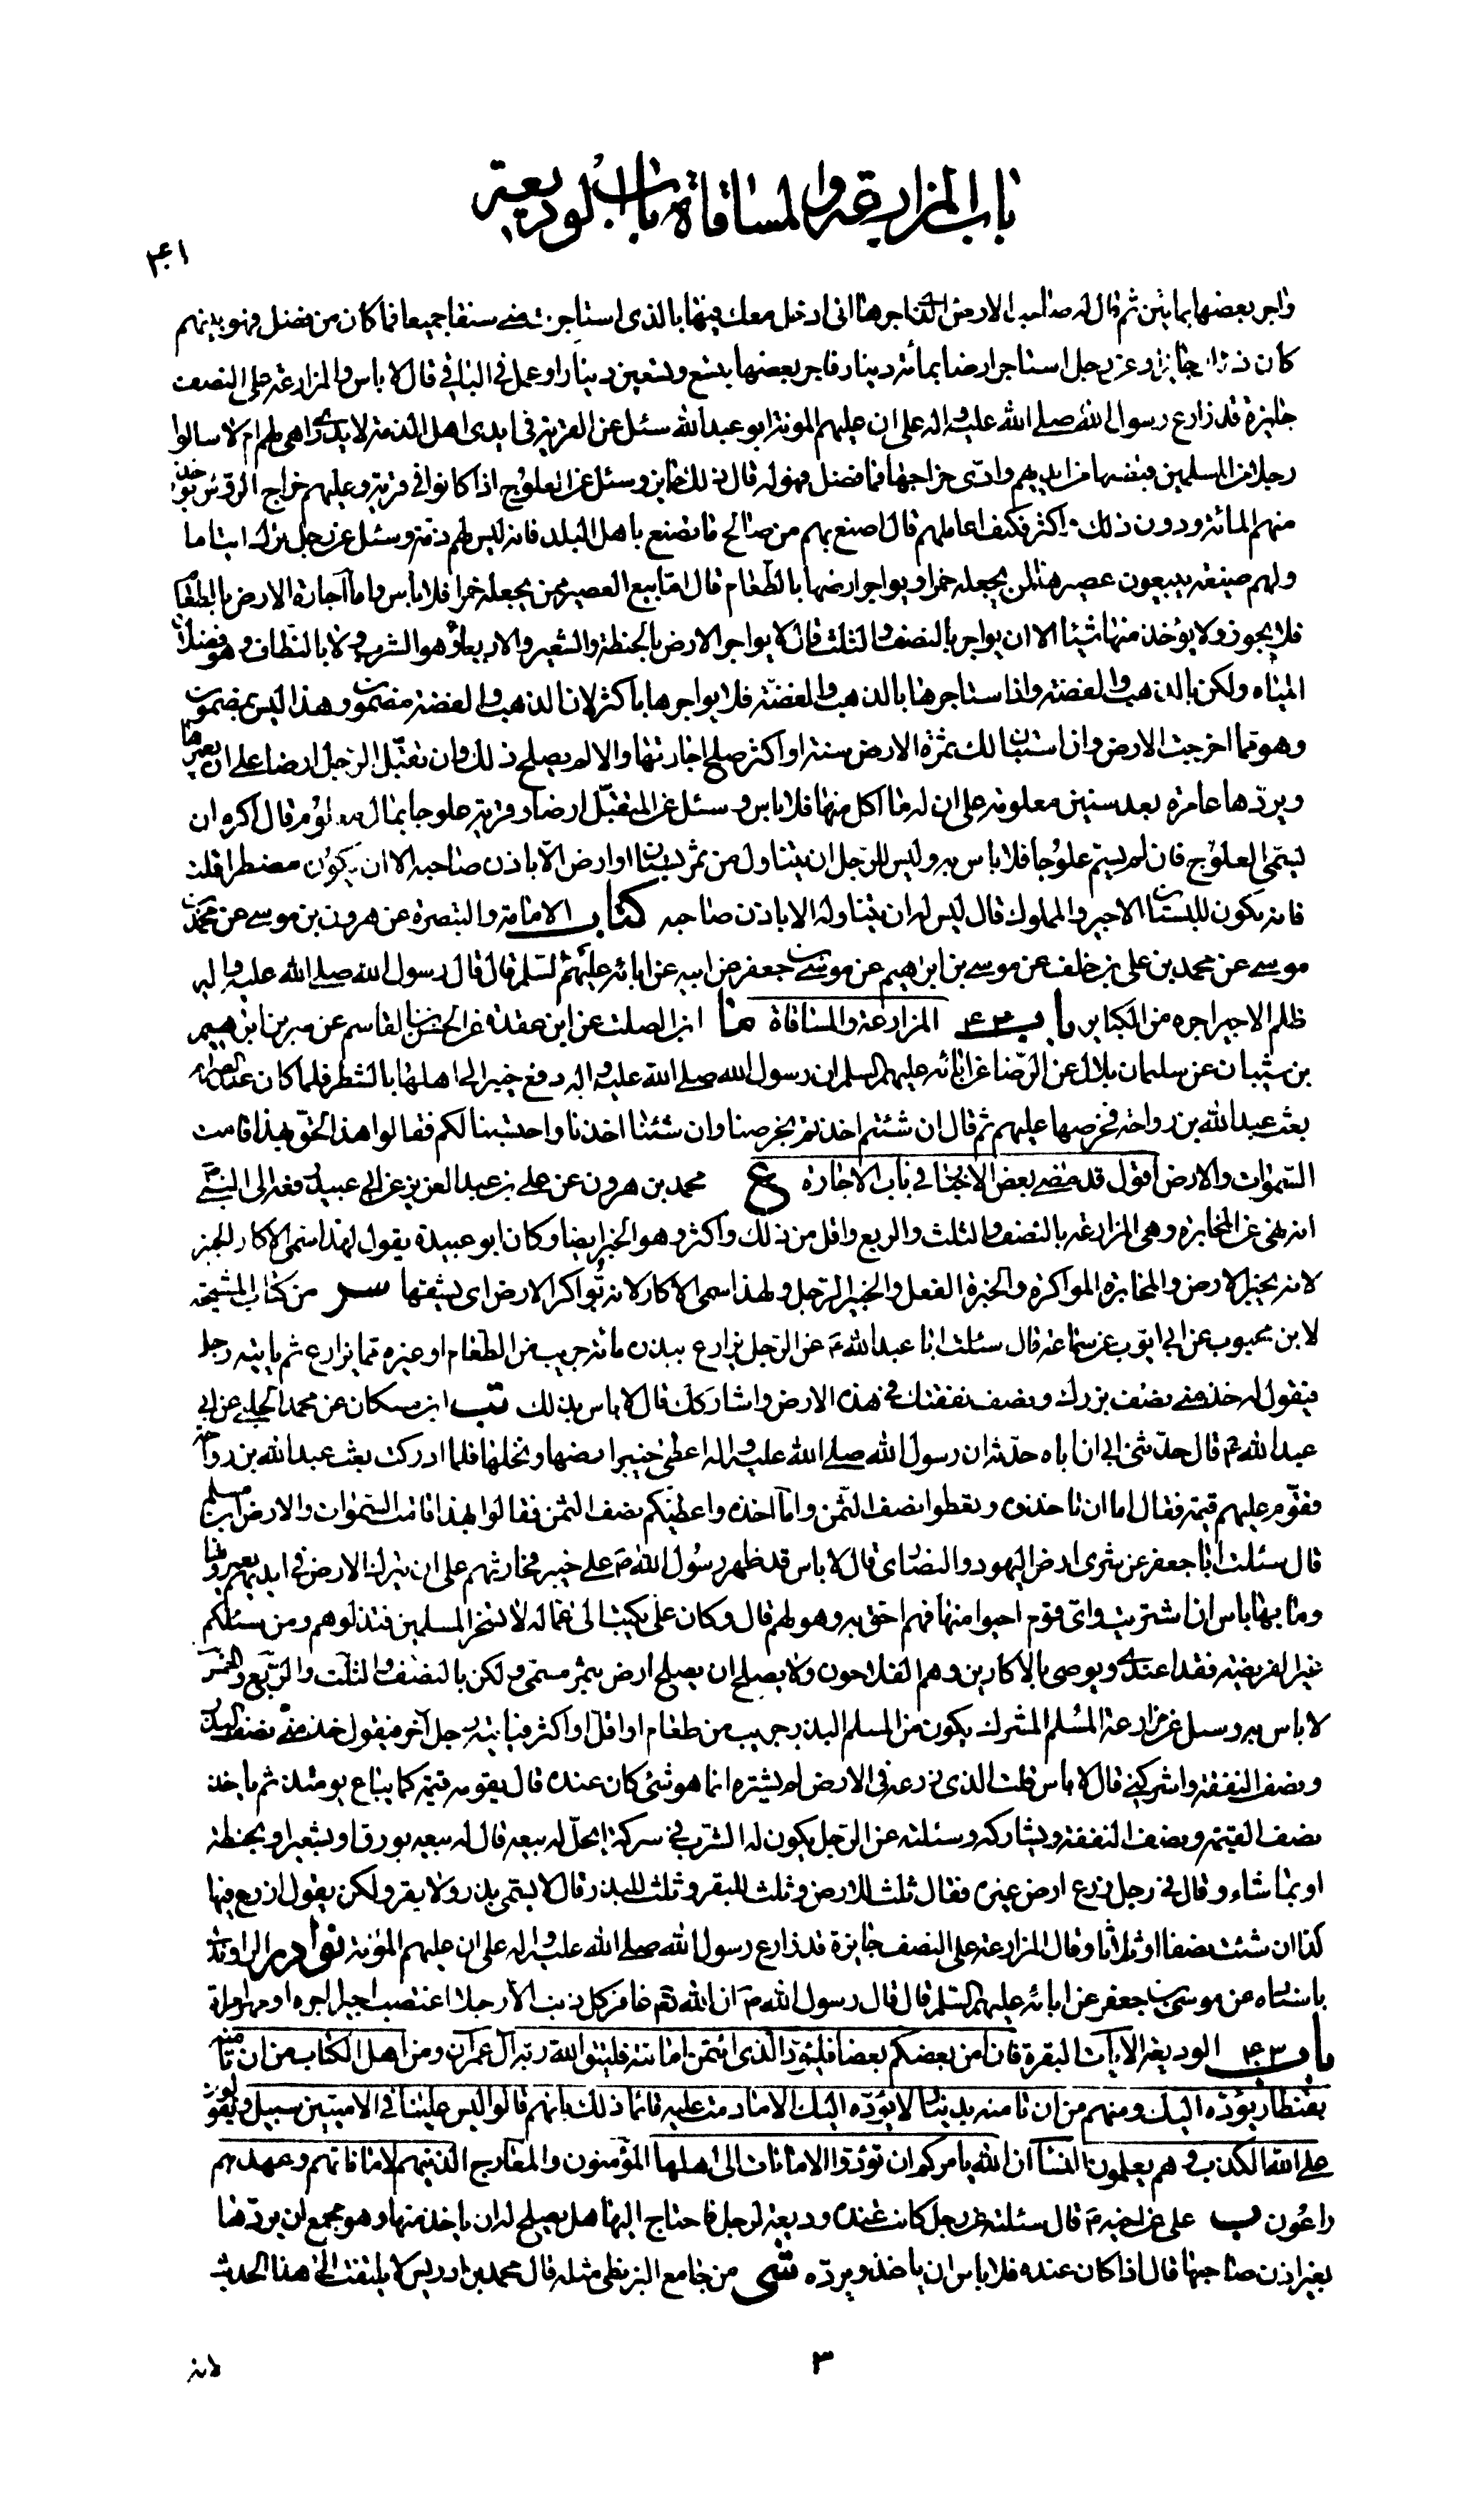 باب المزارعة والمساقاة باب الوديعة
٤١
واجر بعضها بمائتين ثم قال له صاحب الارض الذى اجرها انى ادخل معك فيها بالذى استاجرت منى سنفق جميعا فما كان من فضل فهو بينهم
كان ذلك جايزا وعن رجل استاجر ارضا بمائة دينار فاجر بعضها بتسع وتسعين دينارا وعمل فى الباقى قال لا باس والمزارعة على النصف
جايزة قد زارع رسول الله صلى الله عليه واله على ان عليهم المونة ابو عبد الله سئل عن القرية فى ايدى اهل الذمة لا يدرى اهى لهم ام لا سالوا
رجلا من المسلمين قبضها من ايديهم وادى خراجها فما فضل فهو له قال ذلك جايز وسئل عن العلوج اذا كانوا فى قرية وعليهم خراج الرؤس يؤخذ
منهم المائة ودون ذلك واكثر فكيف اعاملهم قال اصنع بهم من صالح ما تصنع باهل البلد فانه ليس لهم ذمة وسئل عن رجل ترك ايتاما
ولهم ضيعة يبيعون عصيرها لمن يجعله خمرا ويواجر ارضها بالطعام قال اما بيع العصير ممن يجعله خمرا فلا باس واما اجارة الارض بالطعام
فلا يجوز ولا يؤخذ منها شيئا الا ان يواجر بالنصف والثلث قال لا يواجر الارض بالحنطة والشعير والاربعاء وهو الشرب ولا بالنطاف وهو فضلات
المياه ولكن بالذهب والفضة واذا استاجرها بالذهب والفضة فلا يواجرها باكثر لان الذهب والفضة مضمون وهذا ليس بمضمون
وهو مما اخرجت الارض وان استبان لك ثمرة الارض سنة او اكثر صلح اجارتها والا لم يصلح ذلك وان تقبل الرجل ارضا على ان يعمرها
ويردها عامرة بعد سنين معلومة على ان له ما اكل منها فلا باس وسئل عن المتقبل ارضا وقرية علوجا بمال قال اكره ان
يسمى العلوج فان لم يسم علوجا فلا باس به وليس للرجل ان يتناول من ثمر بستان او ارض الا باذن صاحبه الا ان يكون مضطرا قلت
فانه يكون للبستان الاجير والمملوك قال ليس له ان يتناوله الا باذن صاحبه كتاب الامامة والتبصرة عن هرون بن موسى عن محمد بن
موسى عن محمد بن على بن خلف عن موسى بن ابراهيم عن موسى بن جعفر عن ابيه عن ابائه عليهم السلم قال قال رسول الله صلى الله عليه واله
ظلم الاجير اجره من الكباير باب ٤٢ المزارعة والمساقاة ما ابن الصلت عن ابن عقدة عن الحسن بن القاسم عن ابراهيم
بن شيبان عن سليمان بلال عن الرضا عن ابائه عليهم السلم ان رسول الله صلى الله عليه واله دفع خيبر الى اهلها بالشطر فلما كان عند الصرام
بعث عبد الله بن رواحة فخرصها عليهم ثم قال ان شئتم اخذتم بخرصنا وان شئنا اخذنا واحتسبنا لكم فقالوا هذا الحق بهذا قامت
السموات والارض اقول قد مضى بعض الاخبار فى باب الاجارة مع محمد بن هرون عن على بن عبد العزيز عن ابى عبيد رفعه الى النبى
انه نهى عن المخابرة وهى المزارعة بالنصف والثلث والربع واقل من ذلك واكثر وهو الخبر ايضا وكان ابو عبيدة يقول لهذا سمى الاكار الخبير
لانه يخبر الارض والمخابرة المواكرة والخبرة الفعل والخبير الرجل ولهذا سمى الاكار لانه يؤاكر الارض اى يشقها سر من كتاب المشيخة
لابن محبوب عن ابى ايوب عن سماعة قال سئلت ابا عبد الله عن الرجل يزارع ببذره مائة جريب من الطعام او غيره مما يزارع ثم ياتيه رجل
فيقول له خذ منى نصف بزرك ونصف نفقتك فى هذه الارض واشاركك قال لا باس بذلك شى ابن مسكان عن محمد الحلبى عن ابى
عبد الله قال حدثنى ابى ان اباه حدثه ان رسول الله صلى الله عليه واله اعطى خيبر ارضها ونخلها فلما ادركت بعث عبد الله بن رواحة
فقوم عليهم قيمة فقال اما ان تاخذوه وتعطوا نصف الثمن واما اخذه واعطيكم نصف الثمن فقالوا بهذا قامت السموات والارض ابن مسلم
قال سئلت ابا جعفر عن شرى ارض اليهود والنصارى قال لا باس قد ظهر رسول الله على خيبر فخارثهم على ان يترك الارض فى ايديهم يعمرونها
وما بها باس ان اشتريت واى قوم احيوا منها فهم احق به وهو لهم قال وكان على يكتب الى عماله لا تسخروا المسلمين فتذلوهم ومن سئلكم
غير الفريضة فقد اعتدى ويوصى بالاكارين وهم الفلاحون ولا يصلح ان يصلح ارض بثمر مسمى ولكن بالنصف والثلث والربع والخمس
لا باس به وسئل عن مزارعة المسلم المشرك يكون من المسلم البذر جريب من طعام او اقل او اكثر فياتيه رجل آخر فيقول خذ منى نصف البذر
ونصف النفقة واشركنى قال لا باس قلت الذى زرعه فى الارض لم يشتره انما هو شئ كان عنده قال يقومه قيمة كما يباع يومئذ ثم ياخذ
نصف القيمة ونصف النفقة ويشاركه وسئلته عن الرجل يكون له الشرب فى شركة ايحل له بيعه قال له بيعه بورق او بشعير او بحنطة
او بما شاء وقال فى رجل زرع ارض غيره فقال ثلث للارض وثلث للبقر وثلث للبذر قال لا يسمى بذر ولا بقر ولكن يقول ازرع فيها
كذا ان شئت نصفا او ثلثا وقال المزارعة على النصف جايزة قد زارع رسول الله صلى الله عليه واله على ان عليهم المؤنة نوادر الراوندى
باسناده عن موسى بن جعفر عن ابائه عليهم السلم قال قال رسول الله ان الله تعم غافر كل ذنب الا رجلا اغتصب اجيرا اجره او مهر امراة
باب ٤٣ الوديعة الايات البقرة فان امن بعضكم بعضا فليؤد الذى ائتمن امانته فليتق الله ربه آل عمران ومن اهل الكتاب من ان تامنه
بقنطار يؤده اليك ومنهم من ان تامنه بدينار لا يؤده اليك الا ما دمت عليه قائما ذلك بانهم قالوا ليس علينا فى الاميين سبيل ويقولون
على الله الكذب وهم يعلمون النساء ان الله يامركم ان تؤدوا الامانات الى اهلها المؤمنون والمعارج الذينهم لاماناتهم وعهدهم
راعون ب على عن اخيه قال سئلته عن رجل كانت عنده وديعة لرجل فاحتاج اليها هل يصلح له ان ياخذ منها وهو مجمع ان يردها
بغير اذن صاحبها قال اذا كان عنده فلا باس ان ياخذ ويرده شى من جامع البزنطى مثله قال محمد بن ادريس لا يلتفت الى هذا الحديث
٣
لانه